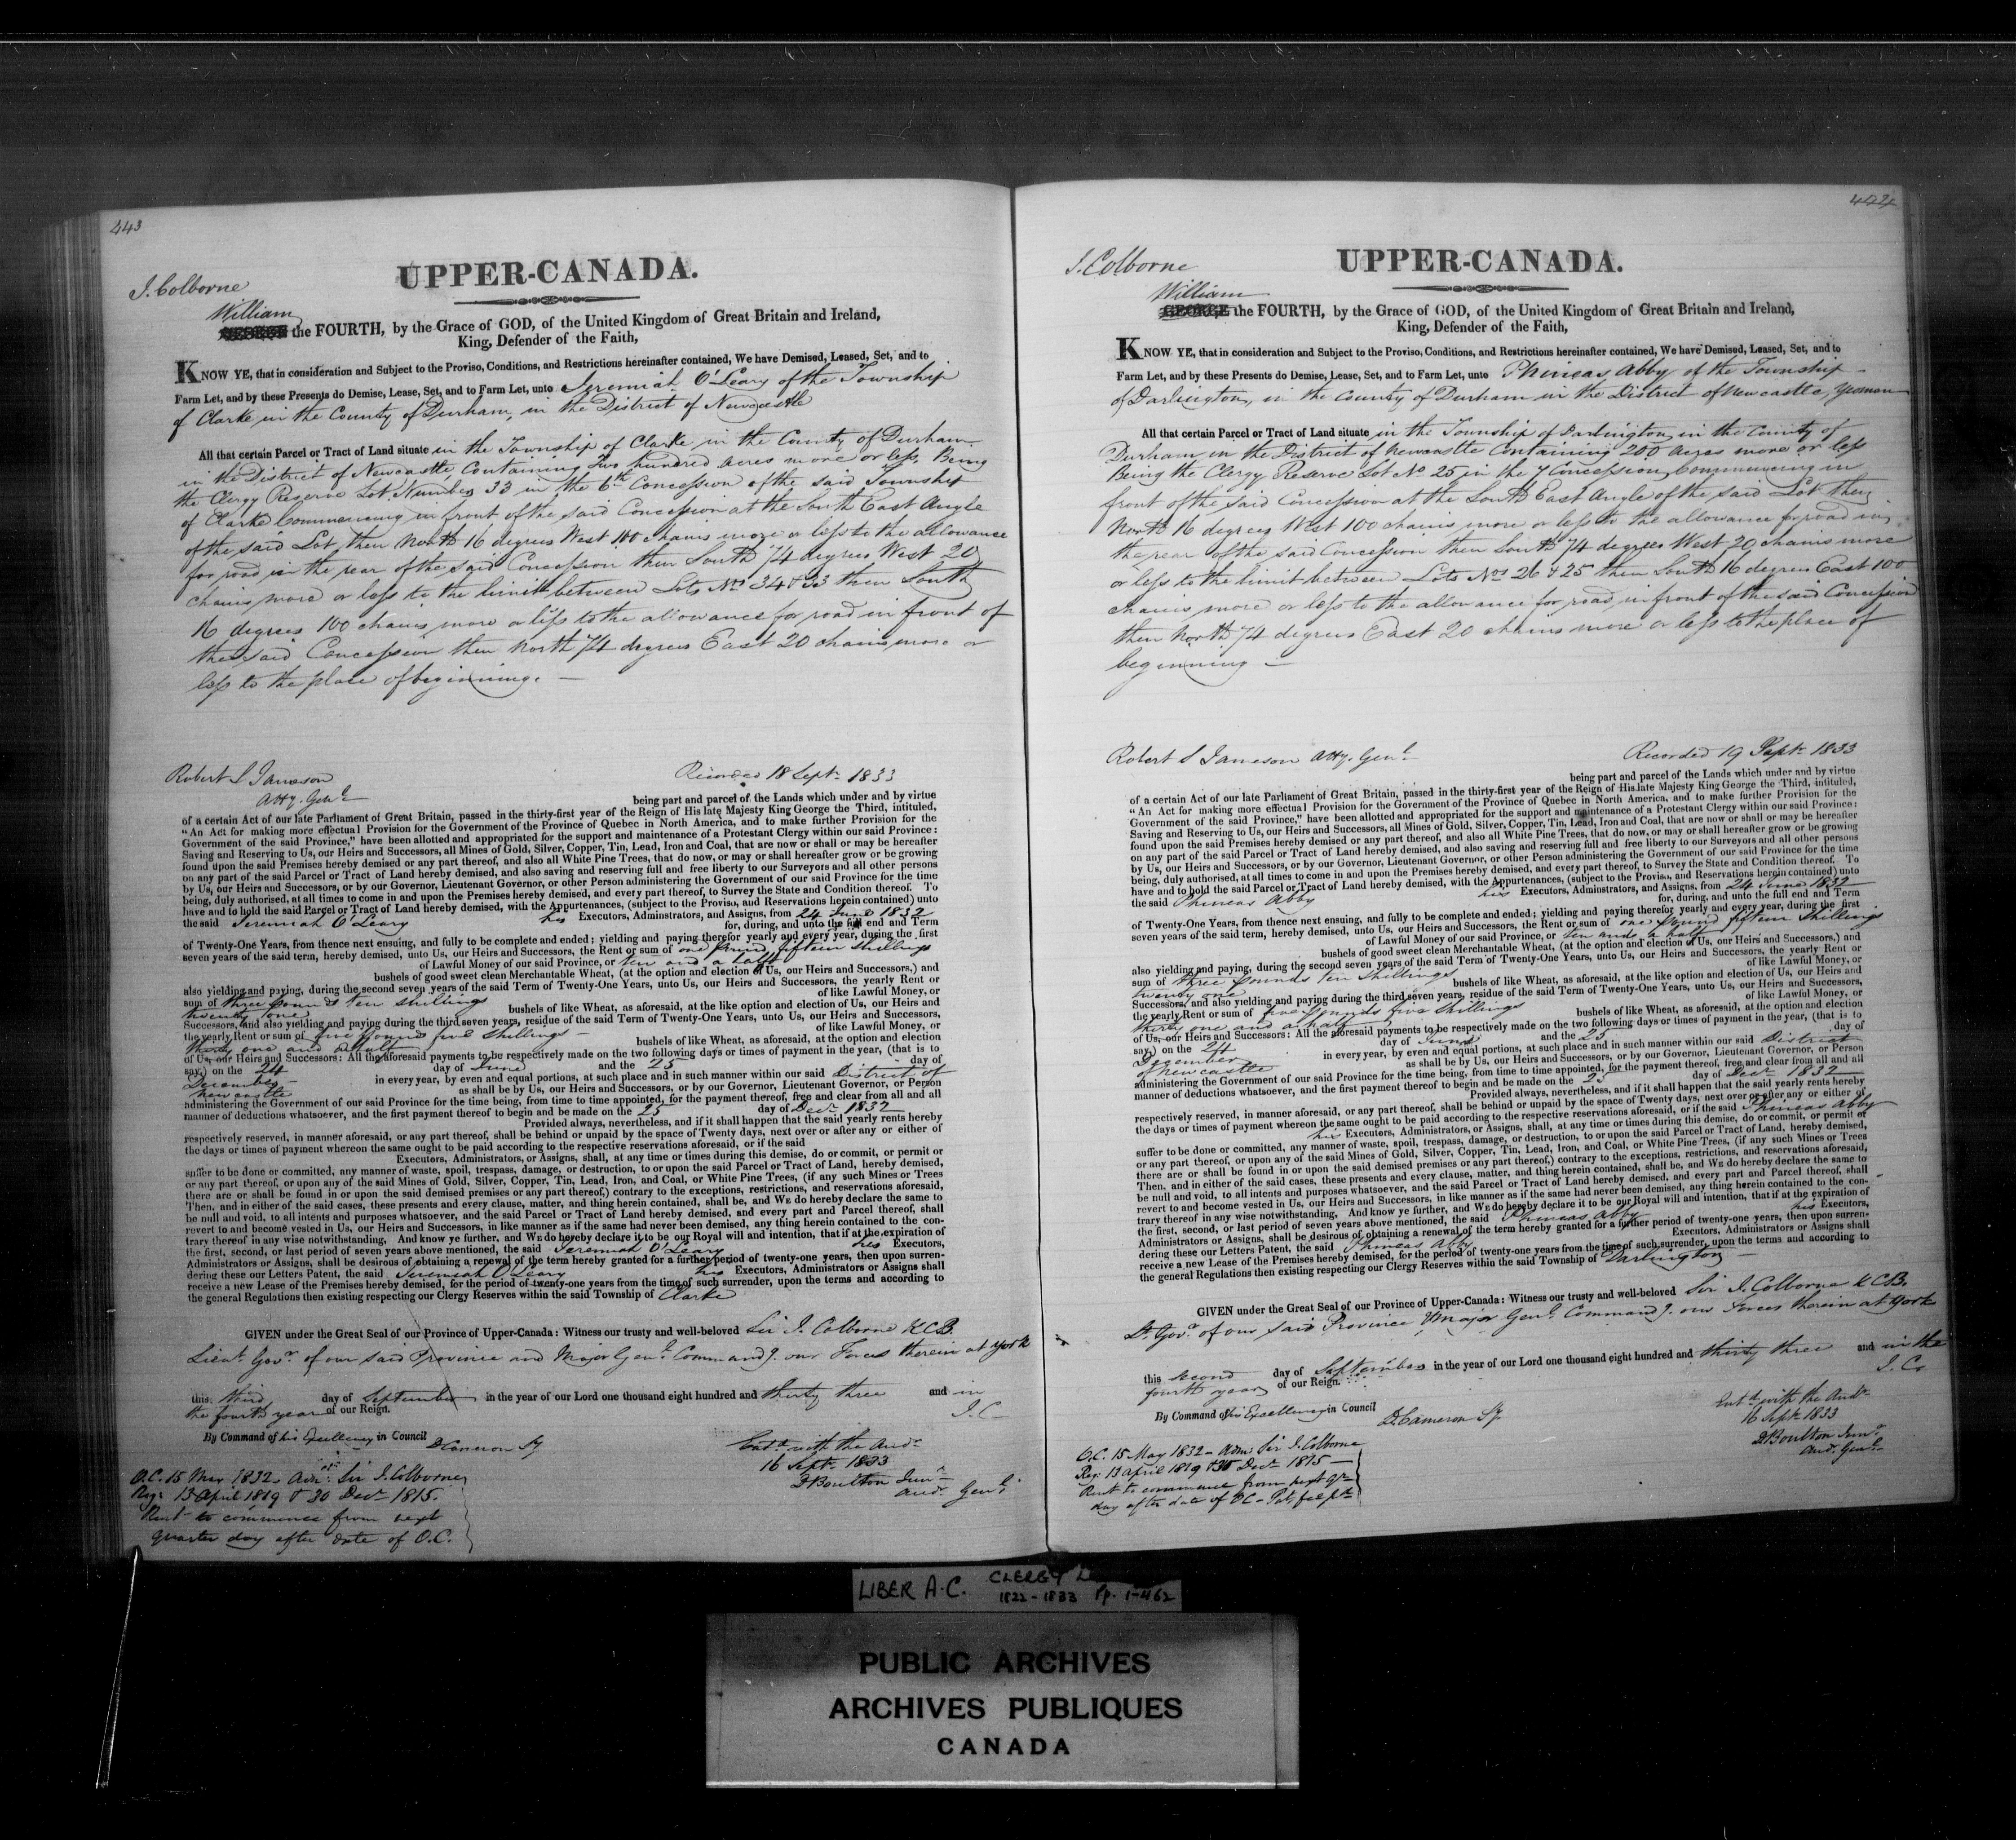 443
UPPER-CANADA.
J. Colborne
William
GEORGE the FOURTH, by the Grace of GOD, of the United Kingdom of Great Britain and Ireland,
King, Defender of the Faith,
KNOW YE, that in consideration and Subject to the Proviso, Conditions, and Restrictions hereinafter contained, We have Demised, Leased, Set, and to
Farm Let, and by these Presents do Demise, Lease, Set, and to Farm Let, unto Jeremiah O'Leary of the Township
of Clarke in the County of Durham, in the District of Newcastle
All that certain Parcel or Tract of Land situate in the Township of Clarke in the County of Durham
in the District of Newcastle, Containing Two hundred acres more or less, Being
the Clergy Reserve Lot Number 33 in the 6th Concession of the said Township
of Clarke Commencing in front of the said Concession at the South East Angle
of the said Lot, then North 16 degrees West 100 chains more or less to the allowance
for road in the rear of the said Concession then South 74 degrees West 20
chains more or less to the limit between Lots Nos 34 & 33 then South
16 degrees 100 chains more or less to the allowance for road in front of
the said Concession then North 74 degrees East 20 chains more or
less to the place of beginning. —
Robert S Jameson Recorded 18 Sept. 1833
Atty. Genl
being part and parcel of the Lands which under and by virtue
of a certain Act of our late Parliament of Great Britain, passed in the thirty-first year of the Reign of His late Majesty King George the Third, intituled,
"An Act for making more effectual Provision for the Government of the Province of Quebec in North America, and to make further Provision for the
Government of the said Province," have been allotted and appropriated for the support and maintenance of a Protestant Clergy within our said Province:
Saving and Reserving to Us, our Heirs and Successors, all Mines of Gold, Silver, Copper, Tin, Lead, Iron and Coal, that are now or shall or may be hereafter
found upon the said Premises hereby demised or any part thereof, and also all White Pine Trees, that do now, or may or shall hereafter grow or be growing
on any part of the said Parcel or Tract of Land hereby demised, and also saving and reserving full and free liberty to our Surveyors and all other persons
by Us, our Heirs and Successors, or by our Governor, Lieutenant Governor, or other Person administering the Government of our said Province for the time
being, duly authorised, at all times to come in and upon the Premises hereby demised, and every part thereof, to Survey the State and Condition thereof. To
have and to hold the said Parcel or Tract of Land hereby demised, with the Appurtenances, (subject to the Proviso, and Reservations herein contained) unto
the said Jeremiah O'Leary his Executors, Adminstrators, and Assigns, from 24 June 1832
for, during, and unto the full end and Term
of Twenty-One Years, from thence next ensuing, and fully to be complete and ended; yielding and paying therefor yearly and every year, during the first
seven years of the said term, hereby demised, unto Us, our Heirs and Successors, the Rent or sum of one pound fifteen shillings
of Lawful Money of our said Province, or ten and a half
bushels of good sweet clean Merchantable Wheat, (at the option and election of Us, our Heirs and Successors,) and
also yielding and paying, during the second seven years of the said Term of Twenty-One Years, unto Us, our Heirs and Successors, the yearly Rent or
sum of three pounds ten shillings of like Lawful Money, or
twenty one bushels of like Wheat, as aforesaid, at the like option and election of Us, our Heirs and
Successors, and also yielding and paying during the third seven years, residue of the said Term of Twenty-One Years, unto Us, our Heirs and Successors,
the yearly Rent or sum of five pounds five shillings — of like Lawful Money, or
thirty one and a half bushels of like Wheat, as aforesaid, at the option and election
of Us, our Heirs and Successors: All the aforesaid payments to be respectively made on the two following days or times of payment in the year, (that is to
say,) on the 24 day of June and the 25 day of
December — in every year, by even and equal portions, at such place and in such manner within our said District of
Newcastle as shall be by Us, our Heirs and Successors, or by our Governor, Lieutenant Governor, or Person
administering the Government of our said Province for the time being, from time to time appointed, for the payment thereof, free and clear from all and all
manner of deductions whatsoever, and the first payment thereof to begin and be made on the 25 day of Decr 1832
Provided always, nevertheless, and if it shall happen that the said yearly rents hereby
respectively reserved, in manner aforesaid, or any part thereof, shall be behind or unpaid by the space of Twenty days, next over or after any or either of
the days or times of payment whereon the same ought to be paid according to the respective reservations aforesaid, or if the said
Executors, Administrators, or Assigns, shall, at any time or times during this demise, do or commit, or permit or
suffer to be done or committed, any manner of waste, spoil, trespass, damage, or destruction, to or upon the said Parcel or Tract of Land, hereby demised,
or any part thereof, or upon any of the said Mines of Gold, Silver, Copper, Tin, Lead, Iron, and Coal, or White Pine Trees, (if any such Mines or Trees
there are or shall be found in or upon the said demised premises or any part thereof,) contrary to the exceptions, restrictions, and reservations aforesaid,
Then, and in either of the said cases, these presents and every clause, matter, and thing herein contained, shall be, and WE do hereby declare the same to
be null and void, to all intents and purposes whatsoever, and the said Parcel or Tract of Land hereby demised, and every part and Parcel thereof, shall
revert to and become vested in Us, our Heirs and Successors, in like manner as if the same had never been demised, any thing herein contained to the con-
trary thereof in any wise notwithstanding. And know ye further, and WE do hereby declare it to be our Royal will and intention, that if at the expiration of
the first, second, or last period of seven years above mentioned, the said Jeremiah O'Leary his Executors,
Administrators or Assigns, shall be desirous of obtaining a renewal of the term hereby granted for a further period of twenty-one years, then upon surren-
dering these our Letters Patent, the said Jeremiah O'Leary his Executors, Administrators or Assigns shall
receive a new Lease of the Premises hereby demised, for the period of twenty-one years from the time of such surrender, upon the terms and according to
the general Regulations then existing respecting our Clergy Reserves within the said Township of Clarke
GIVEN under the Great Seal of our Province of Upper-Canada: Witness our trusty and well-beloved Sir J. Colborne KCB.
Lieut. Govr. of our said Province and Major Genl. Commandg. our Forces therein at York
this third day of September in the year of our Lord one thousand eight hundred and thirty three and in
the fourth year of our Reign. J. C
By Command of his Excellency in Council D Cameron Sy
Entd. with the Audr
16 Septr 1833
J Boulton Junr
Audr. Genl.
O.C. 15 May 1832 Admn. Sir J. Colborne
Regs 13 April 1819 & 30 Decr 1815.
Rent to commence from next
quarter day after date of O.C.
444
UPPER-CANADA.
J. Colborne
William
GEORGE the FOURTH, by the Grace of GOD, of the United Kingdom of Great Britain and Ireland,
King, Defender of the Faith,
KNOW YE, that in consideration and Subject to the Proviso, Conditions, and Restrictions hereinafter contained, We have Demised, Leased, Set, and to
Farm Let, and by these Presents do Demise, Lease, Set, and to Farm Let, unto Phineas Abby of the Township —
of Darlington, in the County of Durham in the District of Newcastle, Yeoman
All that certain Parcel or Tract of Land situate in the Township of Darlington in the County of
Durham in the District of Newcastle Containing 200 acres more or less
Being the Clergy Reserve Lot No. 25 in the 7 Concession, Commencing in
front of the said Concession at the South East Angle of the said Lot then
North 16 degrees West 100 chains more or less to the allowance for road in
the rear of the said Concession then South 74 degrees West 20 chains more
or less to the limit between Lots Nos 26 & 25 then South 16 degrees East 100
chains more or less to the allowance for road in front of the said Concession
then North 74 degrees East 20 chains more or less to the place of
beginning —
Robert S Jameson Atty. Genl Recorded 19 Septr 1833
being part and parcel of the Lands which under and by virtue
of a certain Act of our late Parliament of Great Britain, passed in the thirty-first year of the Reign of His late Majesty King George the Third, intituled,
"An Act for making more effectual Provision for the Government of the Province of Quebec in North America, and to make further Provision for the
Government of the said Province," have been allotted and appropriated for the support and maintenance of a Protestant Clergy within our said Province:
Saving and Reserving to Us, our Heirs and Successors, all Mines of Gold, Silver, Copper, Tin, Lead, Iron and Coal, that are now or shall or may be hereafter
found upon the said Premises hereby demised or any part thereof, and also all White Pine Trees, that do now, or may or shall hereafter grow or be growing
on any part of the said Parcel or Tract of Land hereby demised, and also saving and reserving full and free liberty to our Surveyors and all other persons
by Us, our Heirs and Successors, or by our Governor, Lieutenant Governor, or other Person administering the Government of our said Province for the time
being, duly authorised, at all times to come in and upon the Premises hereby demised, and every part thereof, to Survey the State and Condition thereof. To
have and to hold the said Parcel or Tract of Land hereby demised, with the Appurtenances, (subject to the Proviso, and Reservations herein contained) unto
the said Phineas Abby his Executors, Adminstrators, and Assigns, from 24 June 1832
for, during, and unto the full end and Term
of Twenty-One Years, from thence next ensuing, and fully to be complete and ended; yielding and paying therefor yearly and every year, during the first
seven years of the said term, hereby demised, unto Us, our Heirs and Successors, the Rent or sum of one pound fifteen shillings
of Lawful Money of our said Province, or ten and a half
bushels of good sweet clean Merchantable Wheat, (at the option and election of Us, our Heirs and Successors,) and
also yielding and paying, during the second seven years of the said Term of Twenty-One Years, unto Us, our Heirs and Successors, the yearly Rent or
sum of three pounds ten shillings of like Lawful Money, or
twenty one bushels of like Wheat, as aforesaid, at the like option and election of Us, our Heirs and
Successors, and also yielding and paying during the third seven years, residue of the said Term of Twenty-One Years, unto Us, our Heirs and Successors,
the yearly Rent or sum of five pounds five shillings of like Lawful Money, or
thirty one and a half bushels of like Wheat, as aforesaid, at the option and election
of Us, our Heirs and Successors: All the aforesaid payments to be respectively made on the two following days or times of payment in the year, (that is to
say,) on the 24 day of June and the 25 day of
December in every year, by even and equal portions, at such place and in such manner within our said District
of Newcastle as shall be by Us, our Heirs and Successors, or by our Governor, Lieutenant Governor, or Person
administering the Government of our said Province for the time being, from time to time appointed, for the payment thereof, free and clear from all and all
manner of deductions whatsoever, and the first payment thereof to begin and be made on the 25 day of Decr 1832
Provided always, nevertheless, and if it shall happen that the said yearly rents hereby
respectively reserved, in manner aforesaid, or any part thereof, shall be behind or unpaid by the space of Twenty days, next over or after any or either of
the days or times of payment whereon the same ought to be paid according to the respective reservations aforesaid, or if the said Phineas Abby
his Executors, Administrators, or Assigns, shall, at any time or times during this demise, do or commit, or permit or
suffer to be done or committed, any manner of waste, spoil, trespass, damage, or destruction, to or upon the said Parcel or Tract of Land, hereby demised,
or any part thereof, or upon any of the said Mines of Gold, Silver, Copper, Tin, Lead, Iron, and Coal, or White Pine Trees, (if any such Mines or Trees
there are or shall be found in or upon the said demised premises or any part thereof,) contrary to the exceptions, restrictions, and reservations aforesaid,
Then, and in either of the said cases, these presents and every clause, matter, and thing herein contained, shall be, and WE do hereby declare the same to
be null and void, to all intents and purposes whatsoever, and the said Parcel or Tract of Land hereby demised, and every part and Parcel thereof, shall
revert to and become vested in Us, our Heirs and Successors, in like manner as if the same had never been demised, any thing herein contained to the con-
trary thereof in any wise notwithstanding. And know ye further, and WE do hereby declare it to be our Royal will and intention, that if at the expiration of
the first, second, or last period of seven years above mentioned, the said Phineas Abby his Executors,
Administrators or Assigns, shall be desirous of obtaining a renewal of the term hereby granted for a further period of twenty-one years, then upon surren-
dering these our Letters Patent, the said Phineas Abby Executors, Administrators or Assigns shall
receive a new Lease of the Premises hereby demised, for the period of twenty-one years from the time of such surrender, upon the terms and according to
the general Regulations then existing respecting our Clergy Reserves within the said Township of Darlington —
GIVEN under the Great Seal of our Province of Upper-Canada: Witness our trusty and well-beloved Sir J. Colborne KCB.
Lt. Govr. of our said Province, Major Genl. Commandg. our Forces therein at York
this second day of September in the year of our Lord one thousand eight hundred and thirty three and in the
fourth year of our Reign. J. Co
By Command of his Excellency in Council D. Cameron Sy.
Entd. with the Audr.
16 Septr 1833
J Boulton Junr.
Audr. Genl.
O.C. 15 May 1832 – Admn. Sir J. Colborne
Reg: 13 April 1819 & 30 Decr 1815 —
Rent to commence from next qr.
day after date of OC –
LIBER A.C. CLERGY
1822-1833 Pp. 1-462
PUBLIC ARCHIVES
ARCHIVES PUBLIQUES
CANADA